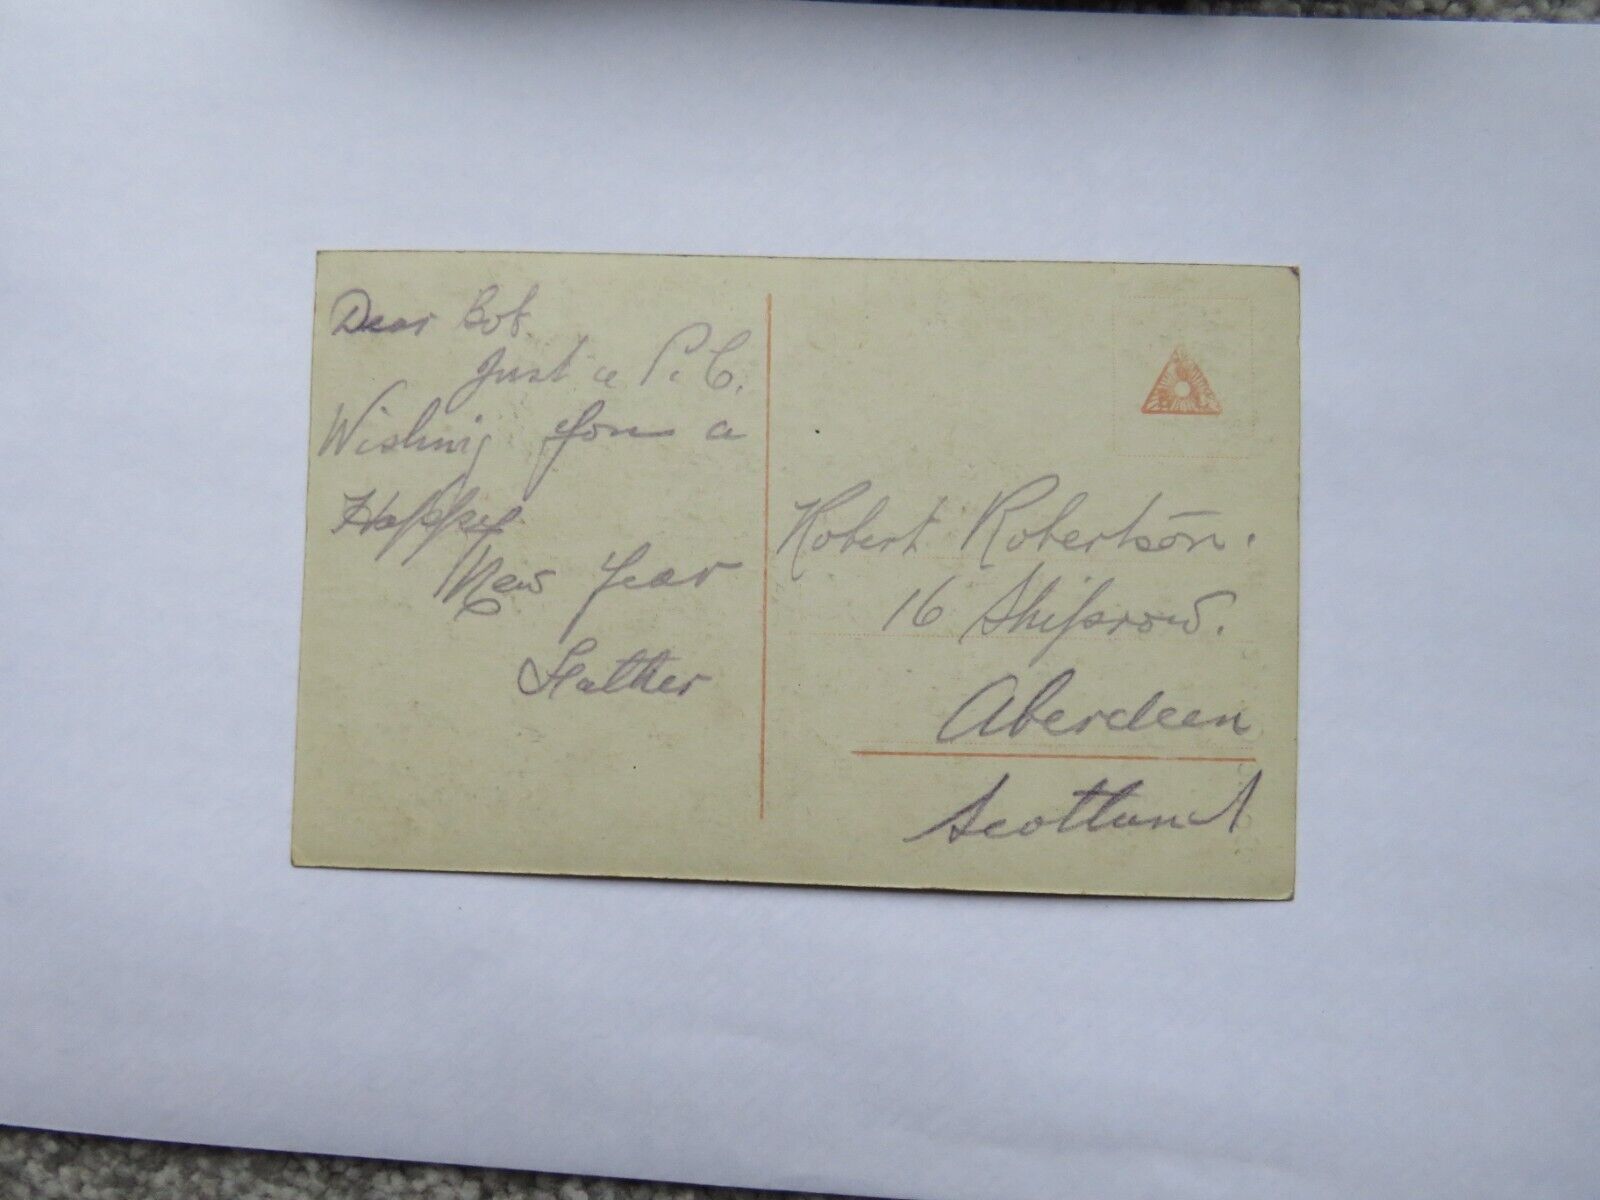 Dear Bob.
Just a P.C.
Wishing you a
Happy
New Year
Father
Robert Robertson.
16 Shiprow.
Aberdeen
Scotland